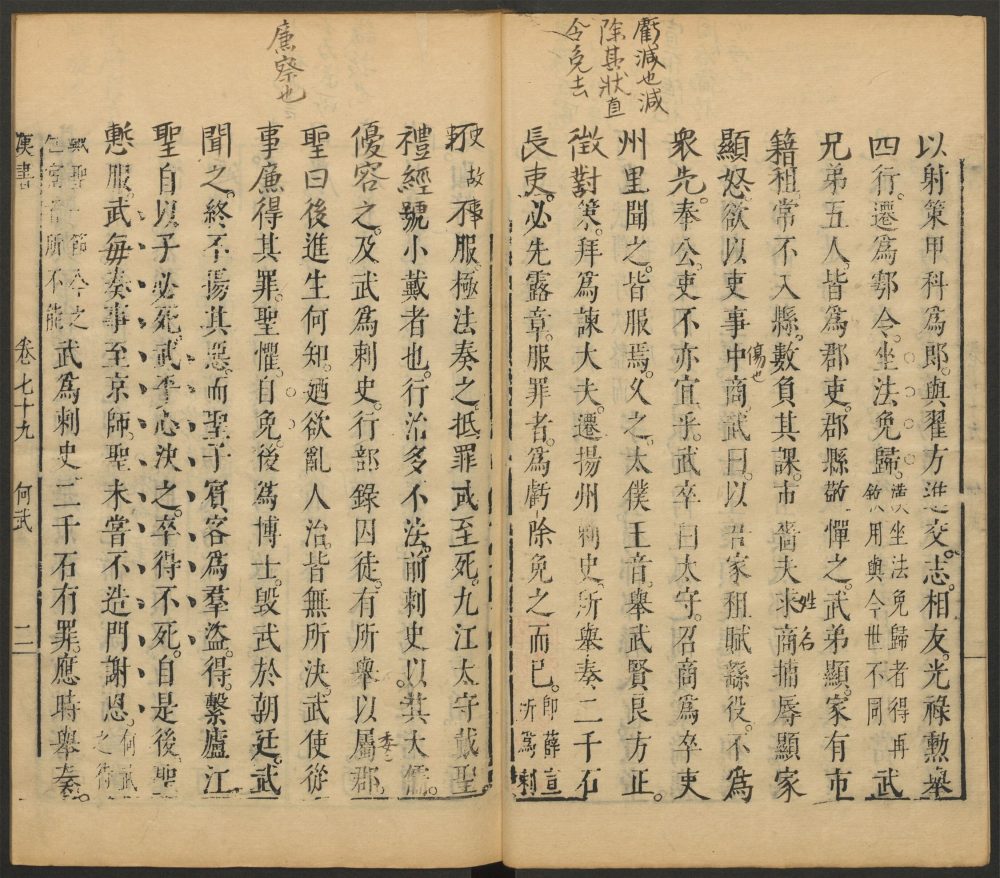 虧減也減
除其狀直
令免去
以射策甲科爲郎。與翟方進交志。相友。光祿勳舉
四行。遷爲鄠令。坐法免歸。漢坐法免歸者得再
敘用與今世不同武
兄弟五人。皆爲郡吏。郡縣敬憚之。武弟顯。家有市
籍。租常不入。縣數負其課。市嗇夫求商捕辱顯家
姓名
顯怒。欲以吏事中商。武曰。以吾家租賦繇役。不爲
傷也
衆先。奉公。吏不亦宜乎。武卒曰太守。召商爲卒吏
州里聞之。皆服焉。久之。太僕王音。舉武賢良方正。
徵對策。拜爲諫大夫。遷揚州刺史。所舉奏二千石
長吏。必先露章。服罪者。爲虧除免之而已。即薛宣
所爲刺
史
故
輒不服。極法奏之。抵罪或至死。九江太守戴聖。
禮經號小戴者也。行治多不法。前刺史以其大儒。
優容之。及武爲刺史。行部錄囚徒。有所舉以屬郡。
委也
聖曰後進生何知。廼欲亂人治。皆無所決。武使從
事廉得其罪。聖懼。自免。後爲博士。毀武於朝廷。武
廉察也
聞之。終不揚其惡。而聖子賓客爲羣盜。得。繫廬江。
聖自以子必死。武平心決之。卒得不死。自是後。聖
慙服。武每奏事至京師。聖未嘗不造門謝恩。何武
之待
戴聖
所不能武爲刺史。二千石有罪。應時舉奏。
漢書 卷七十九 何武 二